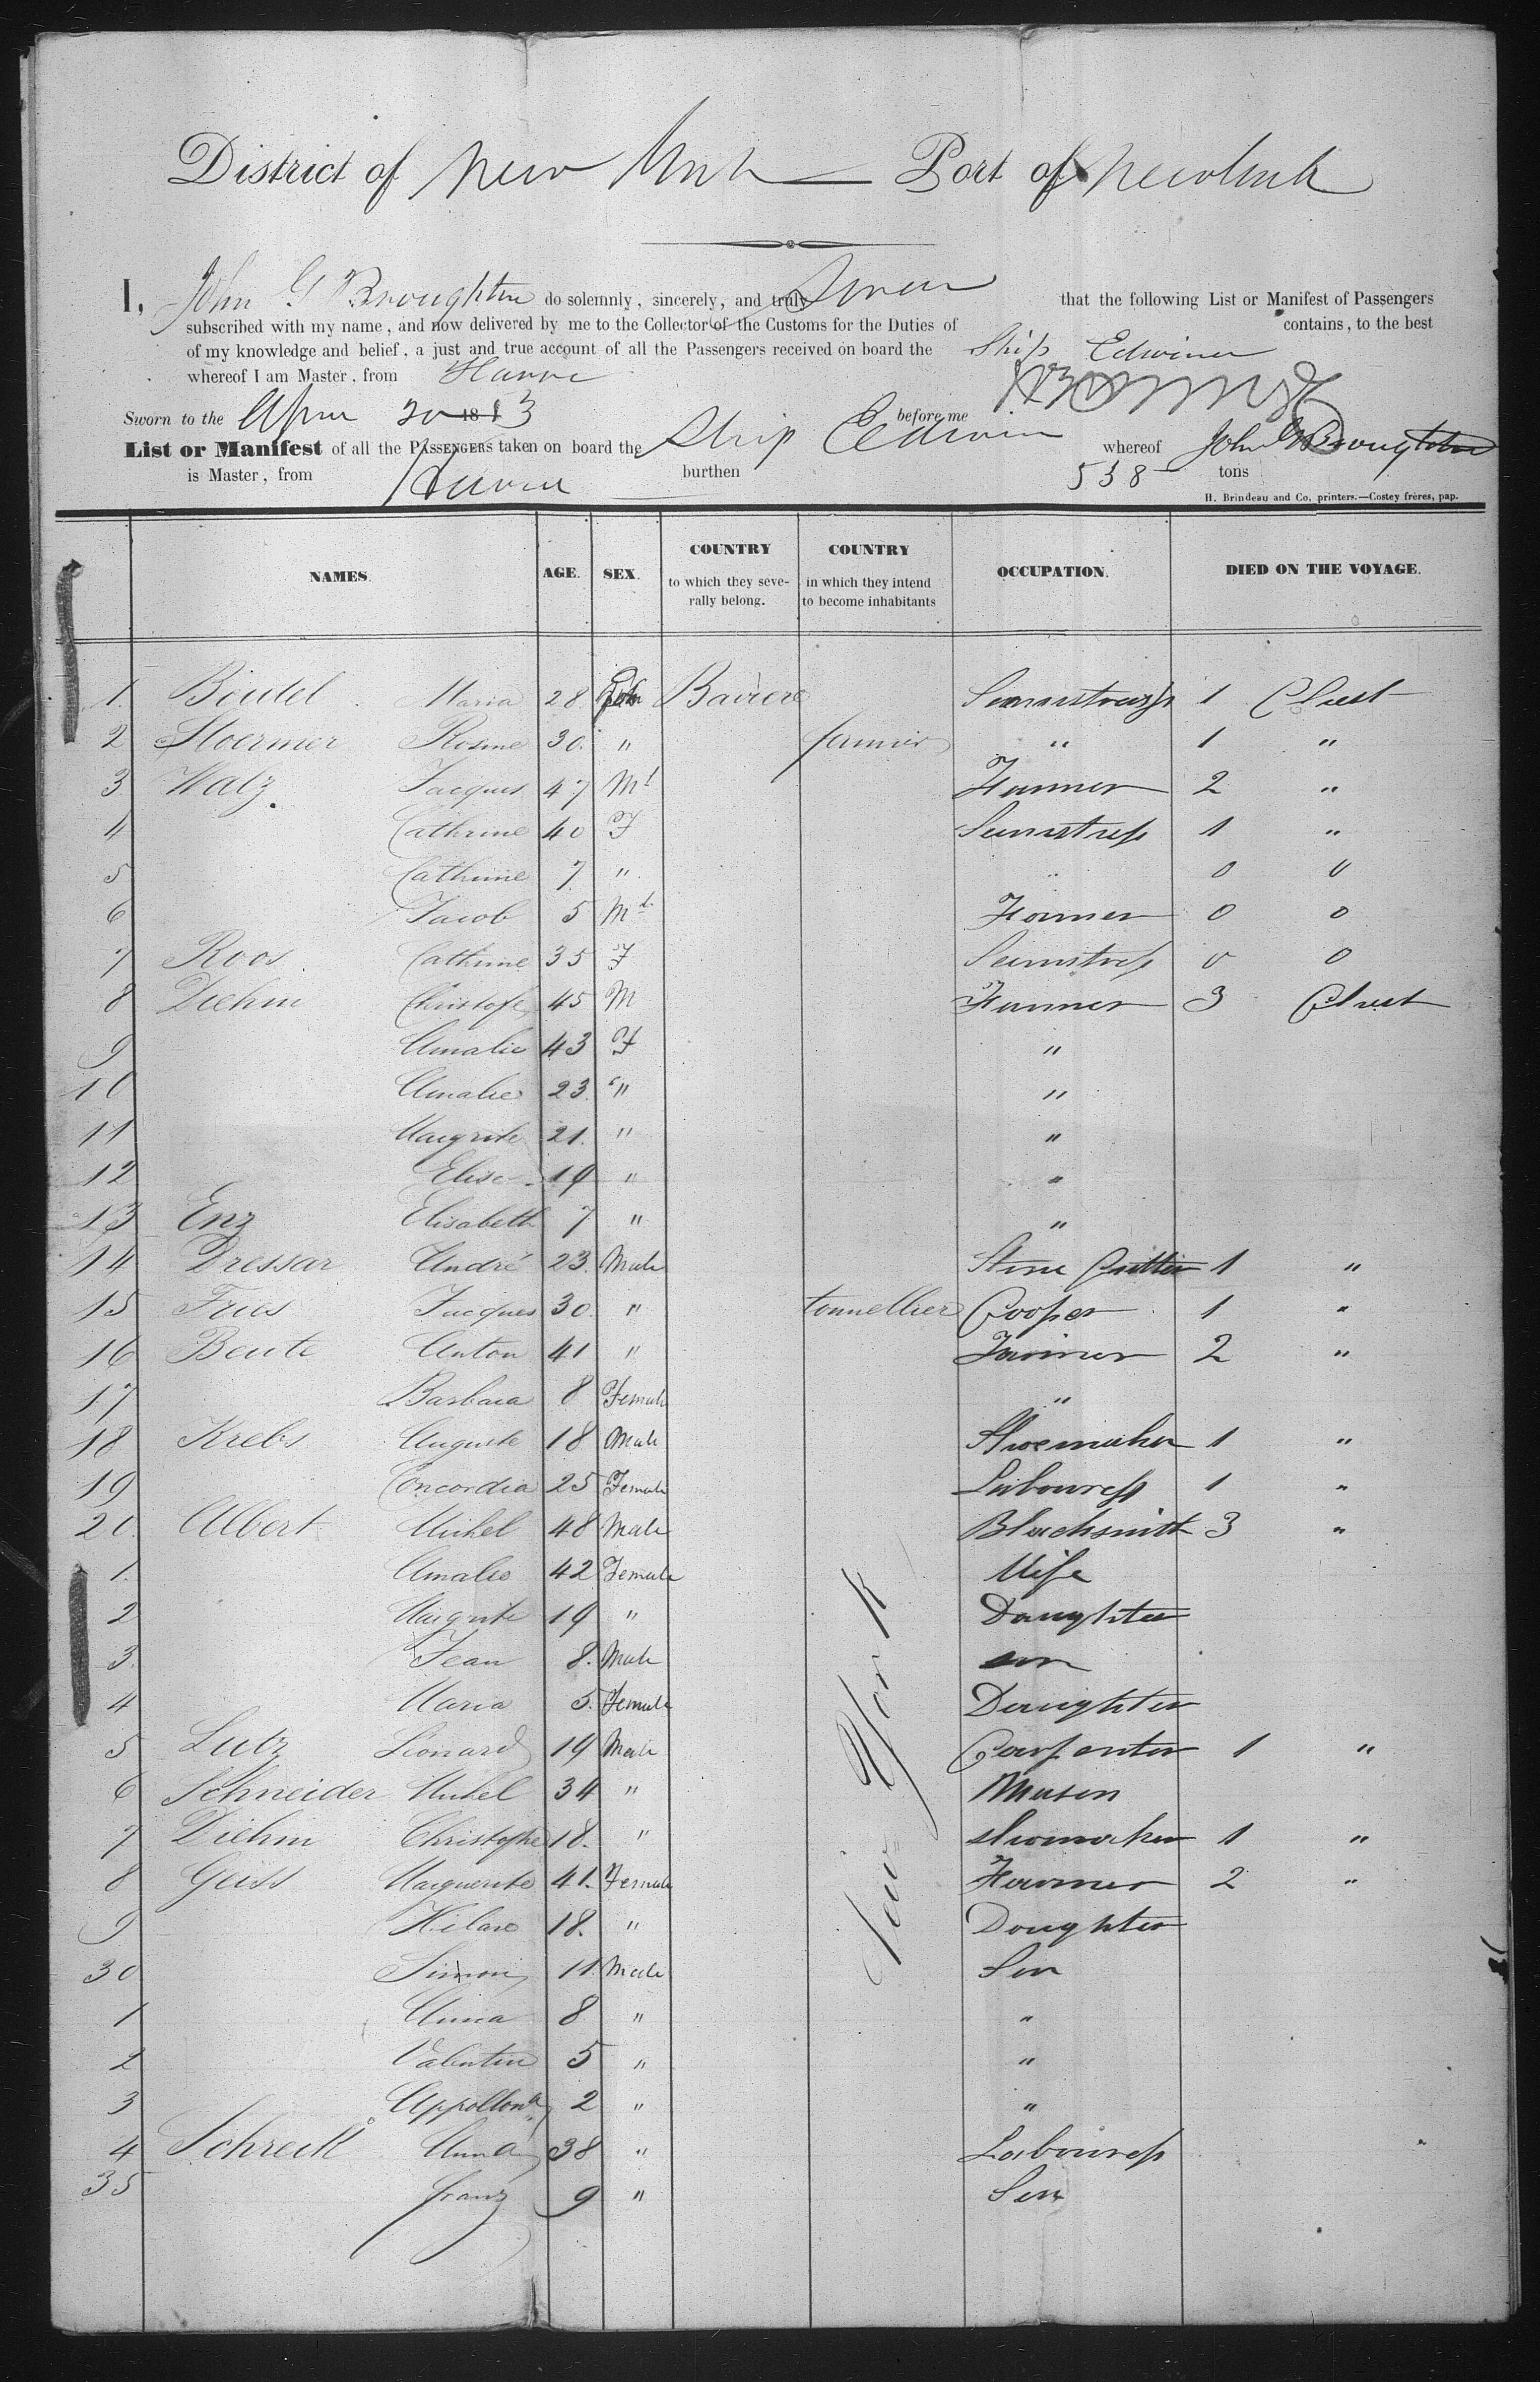 District of New York Port of New York
I, John G Broughton do solemnly, sincerely, and truly Swear that the following List or Manifest of Passengers
subscribed with my name, and now delivered by me to the Collector of the Customs for the Duties of contains, to the best
of my knowledge and belief, a just and true account of all the Passengers received on board the Ship Edwina
whereof I am Master, from Havre
Sworn to the April 20 1853 before me
List or Manifest of all the PASSENGERS taken on board the Ship Edwina whereof John G Broughton
is Master, from Havre burthen 538 tons
H. Brindeau and Co. printers.—Costey frères, pap.
NAMES. AGE. SEX. COUNTRY to which they severally belong. COUNTRY in which they intend to become inhabitants OCCUPATION. DIED ON THE VOYAGE.
1. Boutel Maria 28 Baviere Seamstress 1 Chest
2 Stoermer Rosine 30. " fermier " 1 "
3 Walz Jacques 47 Ml Farmer 2 "
4 Cathrine 40 F Seamstress 1 "
5 Cathrine 7. " " 0 0
6 Jacob 5 Ml Farmer 0 0
7 Roos Cathrine 35 F Seamstress 0 0
8 Diehm Christofe 45 M Farmer 3 Chest
9 Amalie 43 F "
10 Amalie 23. " "
11 Margrite 21. " "
12 Elise 19 " "
13 Enz Elisabeth 7 " "
14 Dressar André 23. Male Stone Cutter 1 "
15 Jacques 30. " tonnellier Cooper 1 "
16 Beute Anton 41 " Farmer 2 "
17 Barbara 8 Female "
18 Krebs Auguste 18 Male Shoemaker 1 "
19 Concordia 25 Female Labouress 1 "
20. Albert Michel 48 Male Blacksmith 3 "
1. Amalie 42 Female Wife
2 Margrite 19 " Daughter
3. Jean 8. Male son
4 Maria 5. Female Daughter
5 Lutz Leonard 19 Male Carpenter 1 "
6 Schneider Michel 34 " Mason
7 Diehm Christophe 18. " shoemaker 1 "
8 Geiss Marguerite 41. Female Farmer 2 "
9 Hilare 18. " Daughter
30 Simon 11. Male Son
1 Anna 8 " "
2 Valentin 5 " "
3 Appollona 2 " "
4 Schreck Anna 38 " Labouress
35 franz 9 " Son
New York